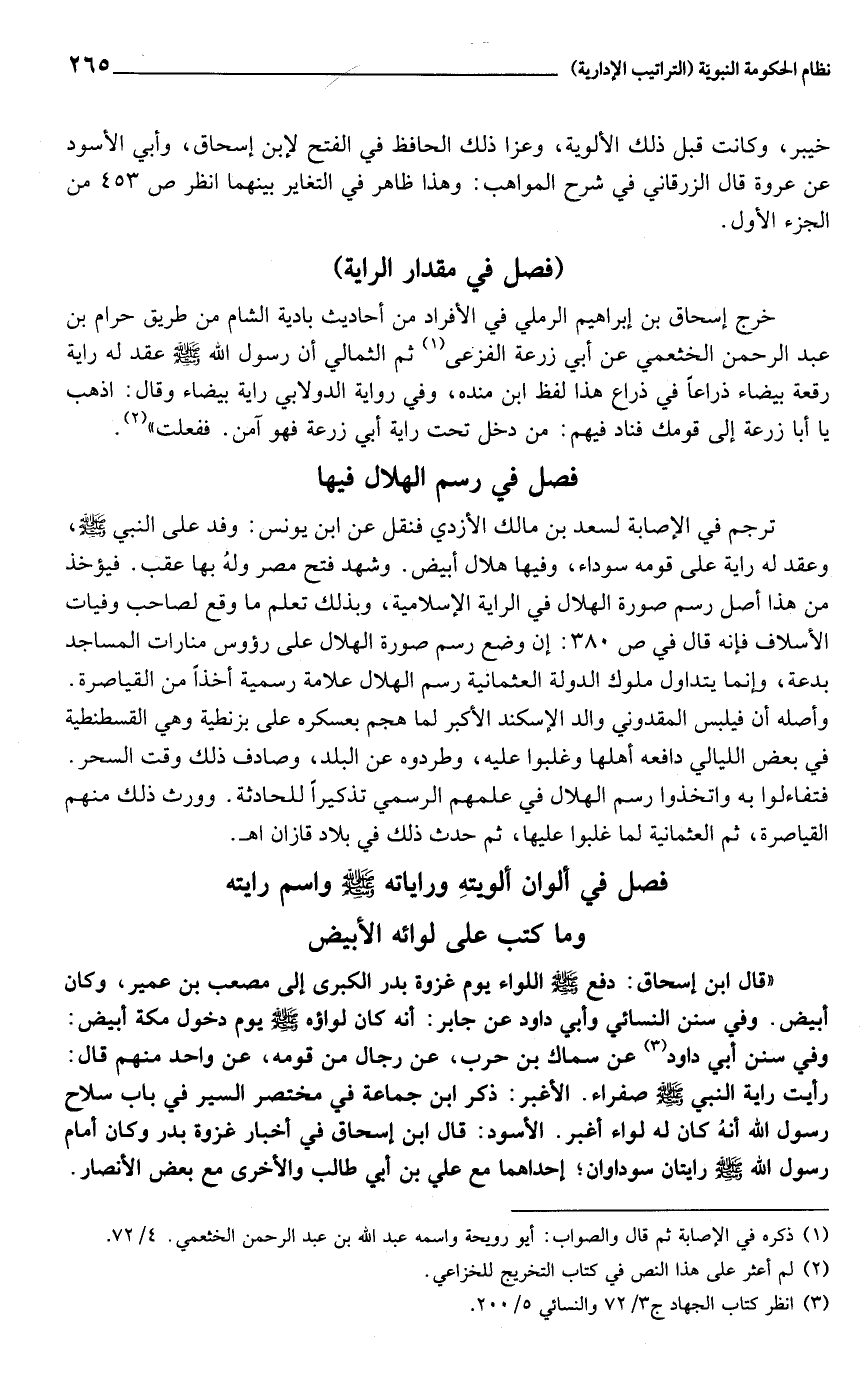 نظام الحكومة النبويّة (التراتيب الإدارية) ٢٦٥
خيبر، وكانت قبل ذلك الألوية، وعزا ذلك الحافظ في الفتح لإبن إسحاق، وأبي الأسود
عن عروة قال الزرقاني في شرح المواهب: وهذا ظاهر في التغاير بينهما انظر ص ٤٥٣ من
الجزء الأول.
(فصل في مقدار الراية)
خرج إسحاق بن إبراهيم الرملي في الأفراد من أحاديث بادية الشام من طريق حرام بن
عبد الرحمن الخثعمي عن أبي زرعة الفزعى(١) ثم الثمالي أن رسول الله ﷺ عقد له راية
رقعة بيضاء ذراعاً في ذراع هذا لفظ ابن منده، وفي رواية الدولابي راية بيضاء وقال: اذهب
يا أبا زرعة إلى قومك فناد فيهم: من دخل تحت راية أبي زرعة فهو آمن. ففعلت»(٢).
فصل في رسم الهلال فيها
ترجم في الإصابة لسعد بن مالك الأزدي فنقل عن ابن يونس: وفد على النبي ﷺ،
وعقد له راية على قومه سوداء، وفيها هلال أبيض. وشهد فتح مصر ولهُ بها عقب. فيؤخذ
من هذا أصل رسم صورة الهلال في الراية الإسلامية، وبذلك تعلم ما وقع لصاحب وفيات
الأسلاف فإنه قال في ص ٣٨٠: إن وضع رسم صورة الهلال على رؤوس منارات المساجد
بدعة، وإنما يتداول ملوك الدولة العثمانية رسم الهلال علامة رسمية أخذاً من القياصرة.
وأصله أن فيلبس المقدوني والد الإسكند الأكبر لما هجم بعسكره على بزنطية وهي القسطنطية
في بعض الليالي دافعه أهلها وغلبوا عليه، وطردوه عن البلد، وصادف ذلك وقت السحر.
فتفاءلوا به واتخذوا رسم الهلال في علمهم الرسمي تذكيراً للحادثة. وورث ذلك منهم
القياصرة، ثم العثمانية لما غلبوا عليها، ثم حدث ذلك في بلاد قازان اهـ.
فصل في ألوان ألويتهِ وراياته ﷺ واسم رايته
وما كتب على لوائه الأبيض
«قال ابن إسحاق: دفع ﷺ اللواء يوم غزوة بدر الكبرى إلى مصعب بن عمير، وكان
أبيض. وفي سنن النسائي وأبي داود عن جابر: أنه كان لواؤه ﷺ يوم دخول مكة أبيض:
وفي سنن أبي داود(٣) عن سماك بن حرب، عن رجال من قومه، عن واحد منهم قال:
رأيت راية النبي ﷺ صفراء. الأغبر: ذكر ابن جماعة في مختصر السير في باب سلاح
رسول الله أنهُ كان له لواء أغبر. الأسود: قال ابن إسحاق في أخبار غزوة بدر وكان أمام
رسول الله ﷺ رايتان سوداوان؛ إحداهما مع علي بن أبي طالب والأخرى مع بعض الأنصار.
(١) ذكره في الإصابة ثم قال والصواب: أيو رويحة واسمه عبد الله بن عبد الرحمن الخثعمي. ٤/ ٧٢.
(٢) لم أعثر على هذا النص في كتاب التخريج للخزاعي.
(٣) انظر كتاب الجهاد ج٣/ ٧٢ والنسائي ٥/ ٢٠٠.